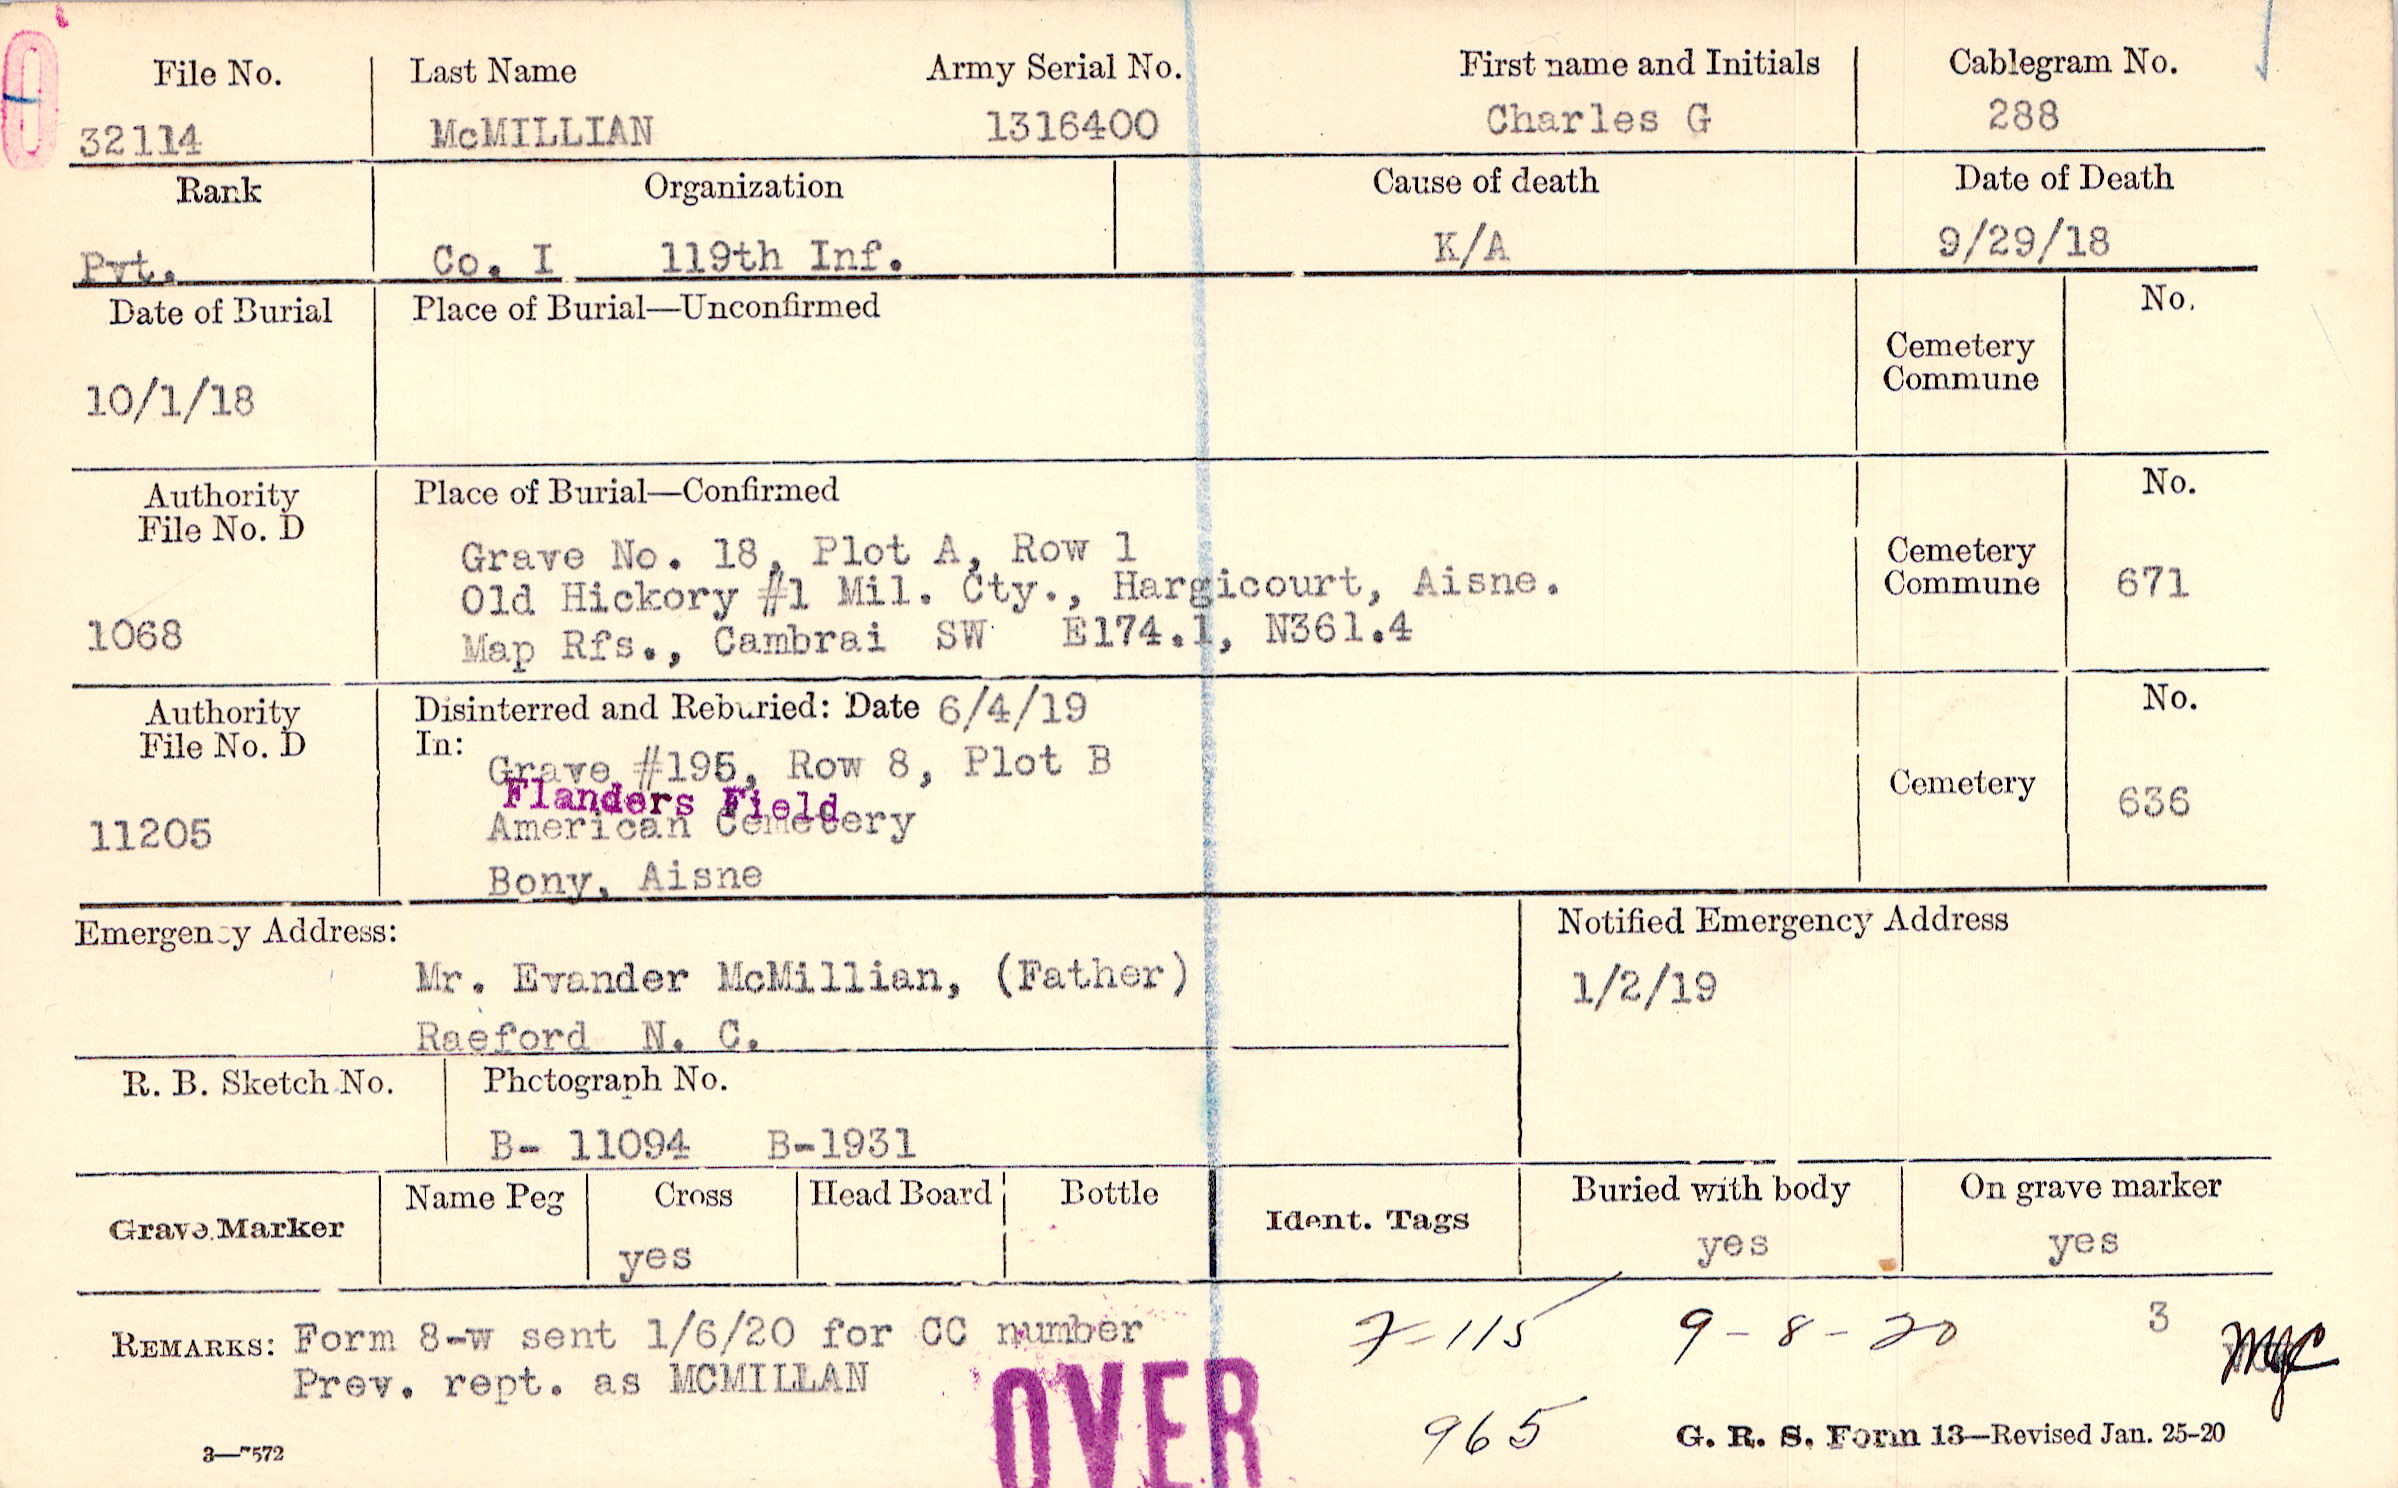 File No. Last Name Army Serial No. First name and Initials Cablegram No.
32114 McMILLIAN 1316400 Charles G 288
Rank Organization Cause of death Date of Death
Pvt. Co. I 119th Inf. K/A 9/29/18
Date of Burial Place of Burial—Unconfirmed No.
Cemetery
Commune
10/1/18
Authority Place of Burial—Confirmed No.
File No. D
Grave No. 18, Plot A, Row 1 Cemetery
Old Hickory #1 Mil. Cty., Hargicourt, Aisne. Commune 671
1068 Map Rfs., Cambrai SW E174.1, N361.4
Authority Disinterred and Reburied: Date 6/4/19 No.
File No. D In:
Grave #195, Row 8, Plot B Cemetery
Flanders Field 636
11205 American Cemetery
Bony, Aisne
Emergency Address: Notified Emergency Address
Mr. Evander McMillian, (Father) 1/2/19
Raeford N. C.
R. B. Sketch No. Photograph No.
B- 11094 B-1931
Name Peg Cross Head Board Bottle Buried with body On grave marker
Grave Marker Ident. Tags
yes yes yes
REMARKS: Form 8-w sent 1/6/20 for CC number 7-115 9-8-20 3
Prev. rept. as MCMILLAN
OVER
965 G. R. S. Form 13—Revised Jan. 25-20